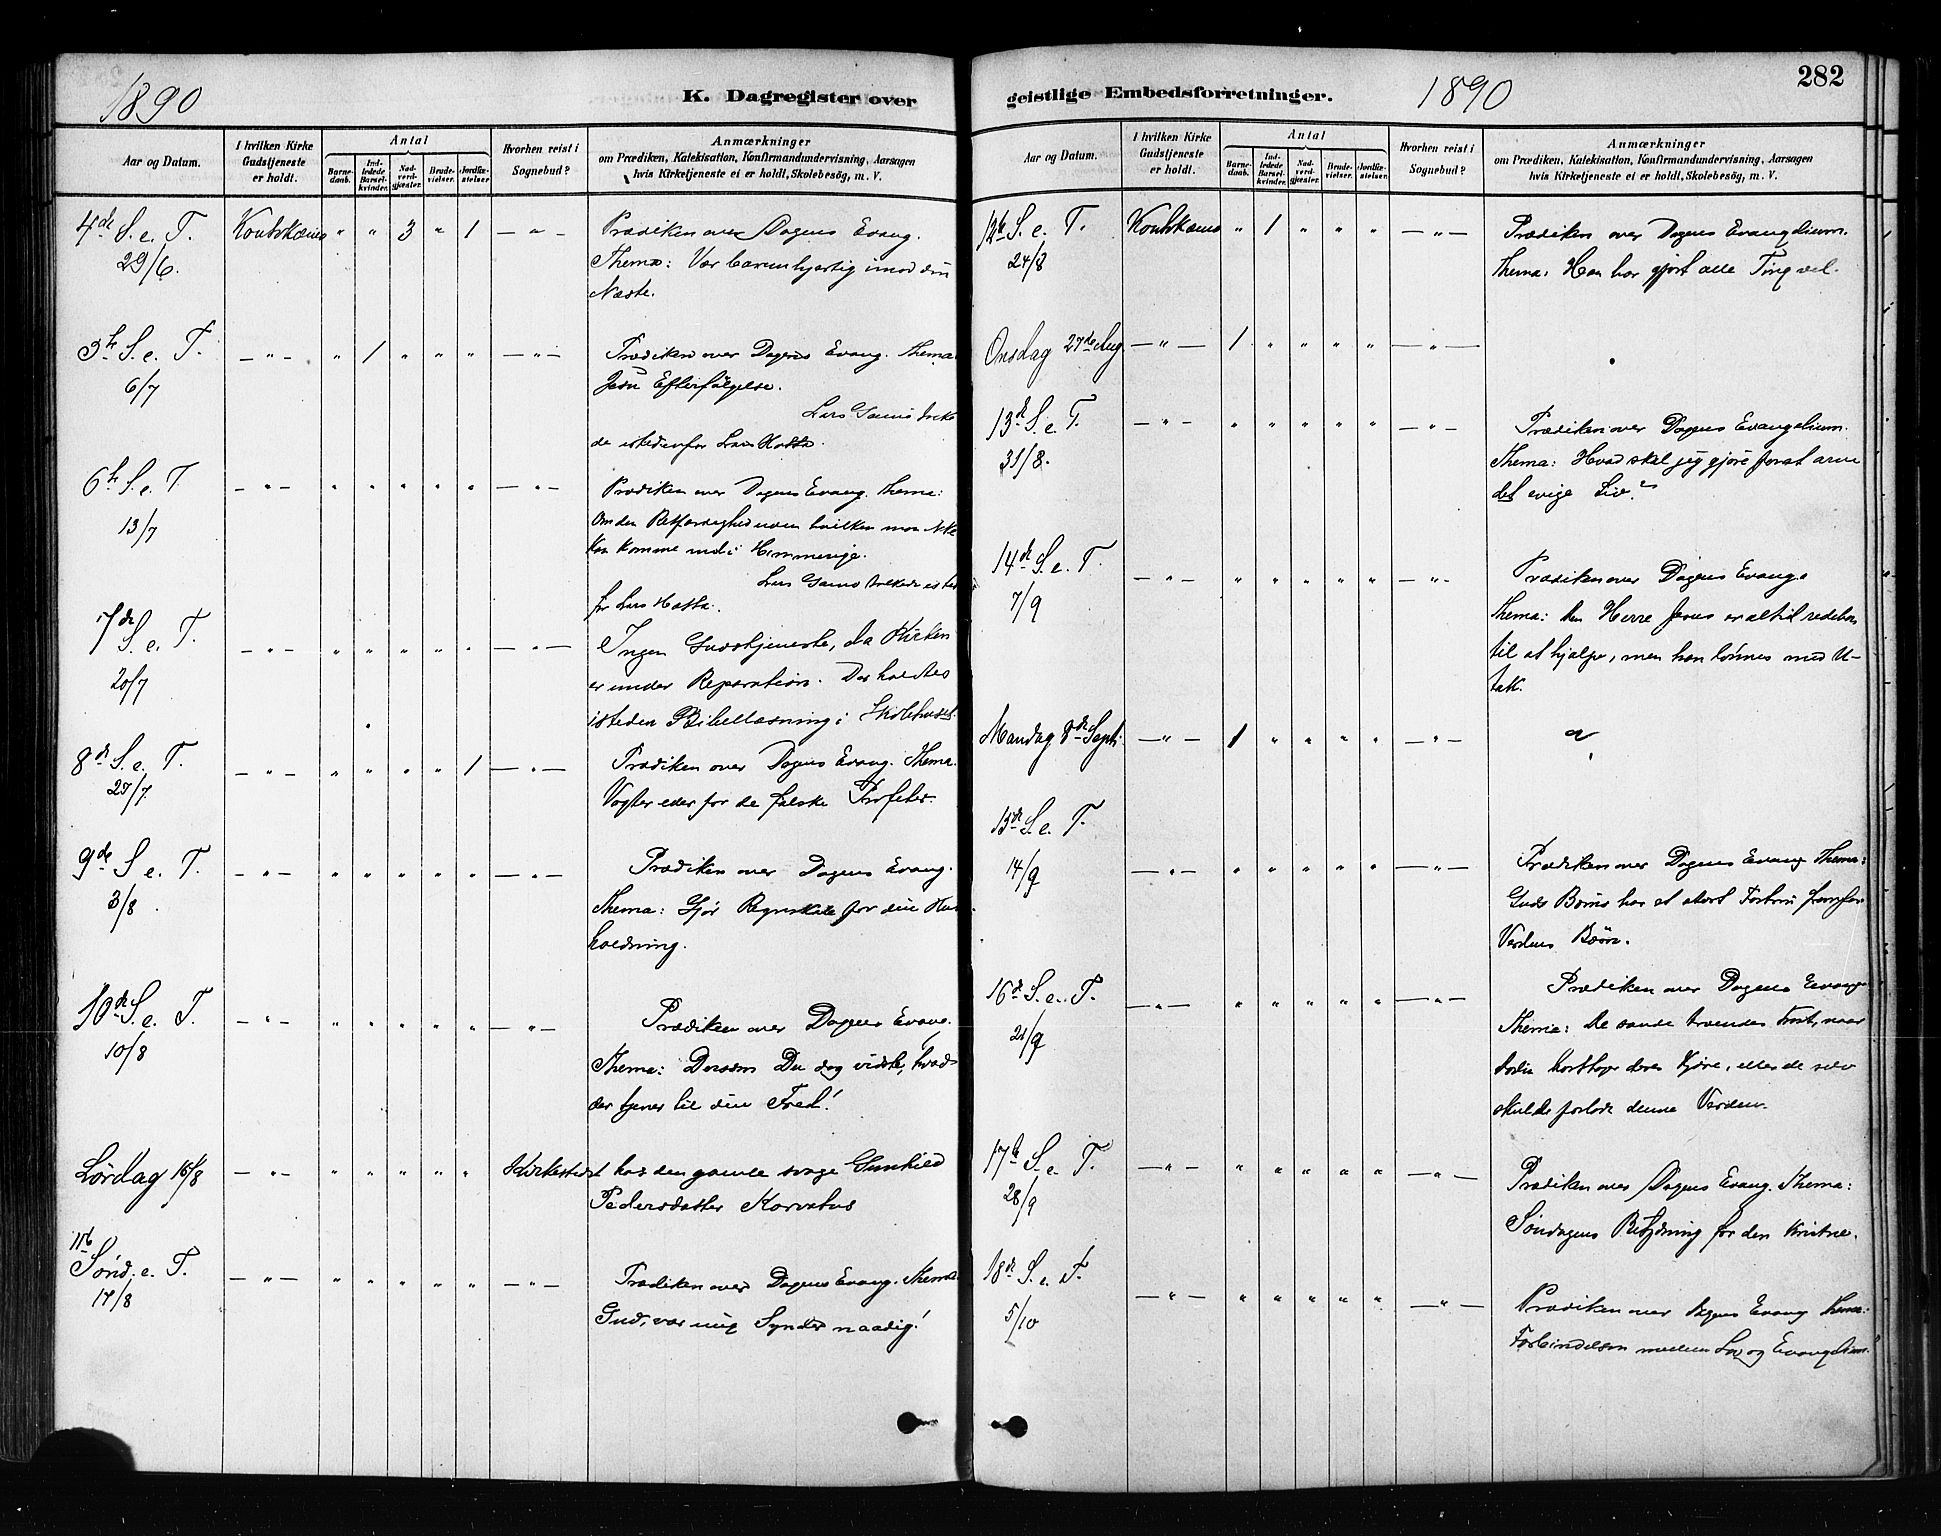 1890
K. Dagregister over
Aar og Datum.
I hvilken Kirke Gudstjeneste er holdt.
Antal
Barne-daab.
Ind-ledede Barsel-kvinder.
Nad-verd-gjæster.
Brude-vielser.
Jordfæ-stelser.
Hvorhen reist i Sognebud?
Anmærkninger
om Prædiken, Katekisation, Konfirmandundervisning, Aarsagen
hvis Kirketjeneste ei er holdt, Skolebesög, m. V.
4de S. e. T. Koutokæino " " 3 " 1 — " — Prædiken over Dagens Evang.
29/6. Thema: Vær barmhjertig imod din
Næste.
5te S. e. T. — " — " 1 " " " — " — Prædiken over Dagens Evang. Thema
6/7 Jesu Efterfølgelse.
Lars
de istedenfor Lars Hætta.
6te S. e. T. — " — " " " " " — " — Prædiken over Dagens Evang. Thema:
13/7 Om den Retfærdighed uden hvilken man ikke
kan komme ind i Himmerige.
Lars
for Lars Hætta.
7de S. e. T. — " — " " " " " — " — Ingen Gudstjeneste, da Kirken
20/7 er under Reparation. Der holdtes
isteden Bibellæsning i Skolehuset.
8de S. e. T. — " — " " " " 1 — " — Prædiken over Dagens Evang. Thema
27/7. Vogter eder for de falske Profeter.
9de S. e. T. — " — " " " " " — " — Prædiken over Dagens Evang.
3/8 Thema: Gjør Regnskab for din Hus-
holdning.
10de S. e. T. — " — " " " " " — " — Prædiken over Dagens Evang.
10/8 Thema: Dersom Du dog vidste, hvad
der tjener til din Fred!
Lørdag 16/8 — " — " " " " " Kirkestedet hos den gamle svage Gunhild
Pedersdatter Korvatus
11te
Sönd. e. T. — " — " " " " " — " — Prædiken over Dagens Evang. Thema
17/8 Gud, vær mig Synder naadig!
282
geistlige Embedsforretninger.
1890
Aar og Datum.
I hvilken Kirke Gudstjeneste er holdt.
Antal
Barne-daab.
Ind-ledede Barsel-kvinder.
Nad-verd-gjæster.
Brude-vielser.
Jordfæ-stelser.
Hvorhen reist i Sognebud?
Anmærkninger
om Prædiken, Katekisation, Konfirmandundervisning, Aarsagen
hvis Kirketjeneste ei er holdt, Skolebesög, m. V.
12te S. e. T. Koutokæino " 1 " " " — " — Prædiken over Dagens Evangelium.
24/8 Thema: Han har gjort alle Ting vel.
Onsdag 27de Aug. — " — 1 " " " " — " —
13de S. e. T. — " — " " " " " — " — Prædiken over Dagens Evangelium.
31/8. Thema: Hvad skal jeg gjøre forat arve
det evige Liv?
14de S. e. T. — " — " " " " " — " — Prædiken over Dagens Evang.
7/9 Thema: Den Herre Jesus er altid redebon
til at hjælpe, men han lönnes med U-
tak.
Mandag 8de Septb. — " — 1 " " " " — " — "
15de S. e. T.
14/9 — " — " " " " " — " — Prædiken over Dagens Evang. Thema:
Guds Börns har et stort Fortrin fremfor
Verdens Børn.
16de S. e. T. — " — " " " " " — " — Prædiken over Dagens Evang.
21/9 Thema: De sande troendes Trost, naar
borttager deres Kjære, eller de selv
skulde forlade denne Verden.
17de S. e. T. — " — " " " " " — " — Prædiken over Dagens Evang. Thema:
28/9 Söndagens Betydning for den Kristne.
18de S. e. T. — " — " " " " " — " — Prædiken over Dagens Evang Thema:
5/10 Forbindelsen mellem Lov og Evangelium.